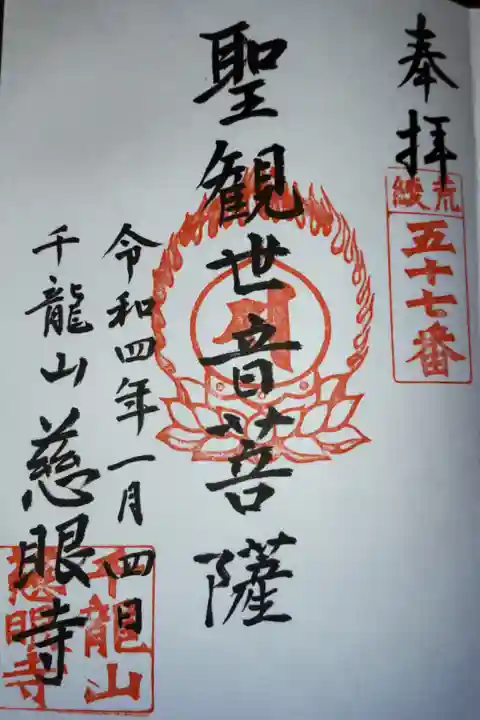 奉拝
荒綾
五十七番
聖観世音菩薩
令和四年一月四日
千龍山 慈眼寺
千龍山
慈眼寺